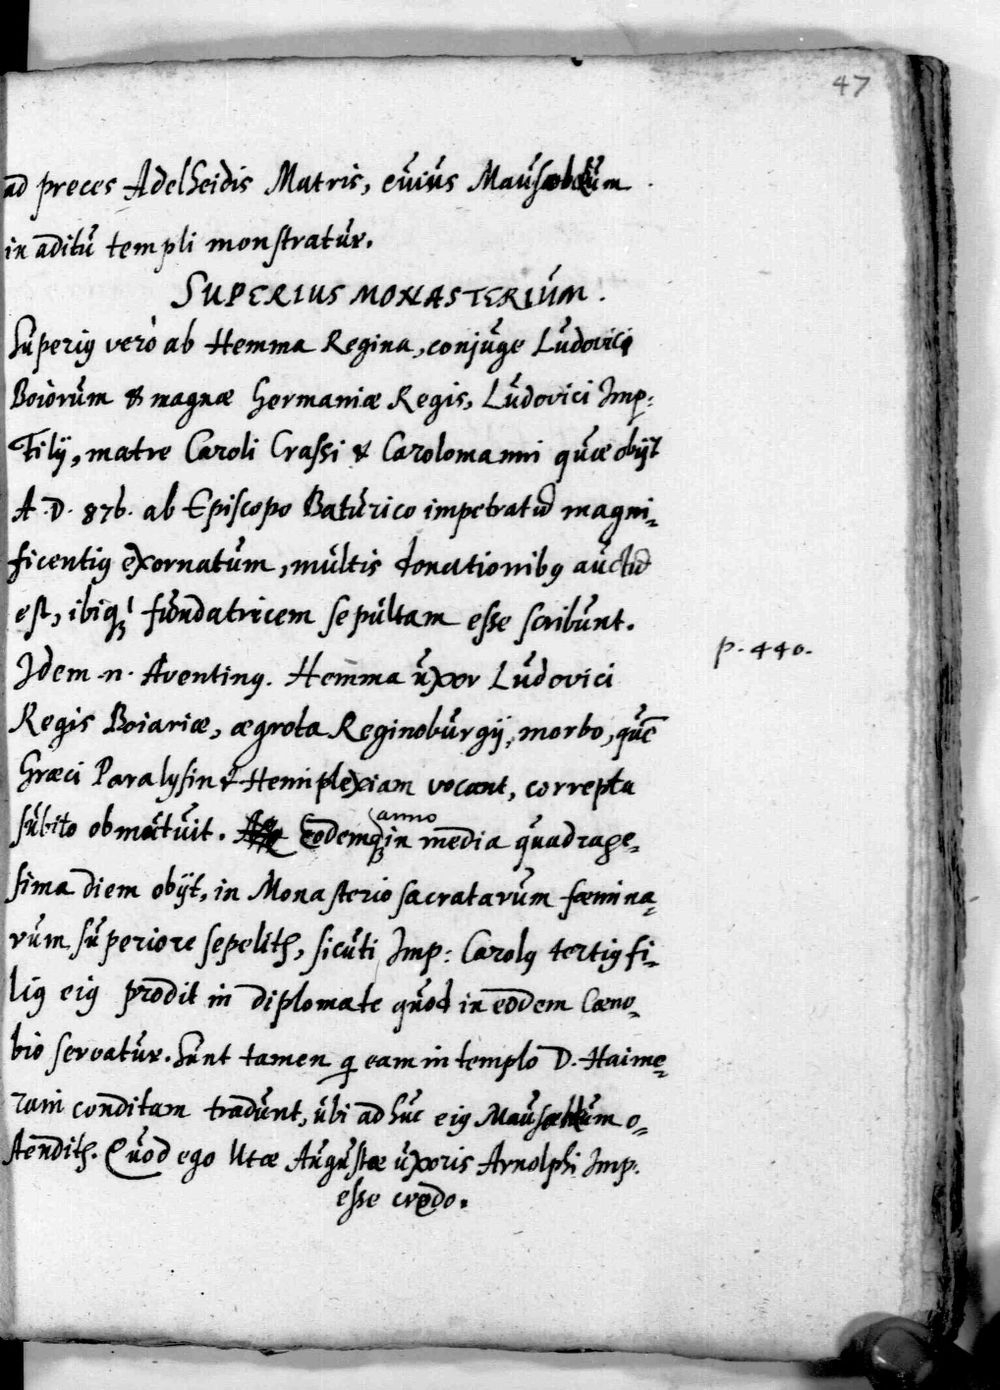 47
ad preces Adelheidis Matris, cuius Mausoleum
in aditu templi monstratur.
SUPERIUS MONASTERIUM.
Superiꝰ verò ab Hemma Regina, conjuge Ludovici
Boiorum & magnæ Germaniæ Regis, Ludovici Imp:
Filij, matre Caroli Crassi & Carolomanni quæ obijt
A.D. 876. ab Episcopo Baturico impetratũ magni-
ficentiꝰ exornatum, multis donationibꝰ auctũ
est, ibiqꝫ fundatricem sepultam esse scribunt.
p. 440.
Idem .n. Aventinꝰ. Hemma uxor Ludovici
Regis Boiariæ, ægrota Reginoburgij, morbo, quẽ
Græci Paralysin & Hemiplexiam vocant, correpta
subito obmutuit. Eodemqꝫ anno in media quadrage-
sima diem obijt, in Monasterio sacratarum fœmina-
rum superiore sepelitꝭ, sicuti Imp: Carolꝰ tertiꝰ fi-
liꝰ eiꝰ prodit in diplomate quod in eodem Cæno-
bio servatur. Sunt tamen q̃ eam in templo D. Haime-
rami conditam tradunt, ubi adhuc eiꝰ Mausoleum o-
stenditꝭ. Quod ego Utæ Augustæ uxoris Arnolphi Imp.
esse credo.